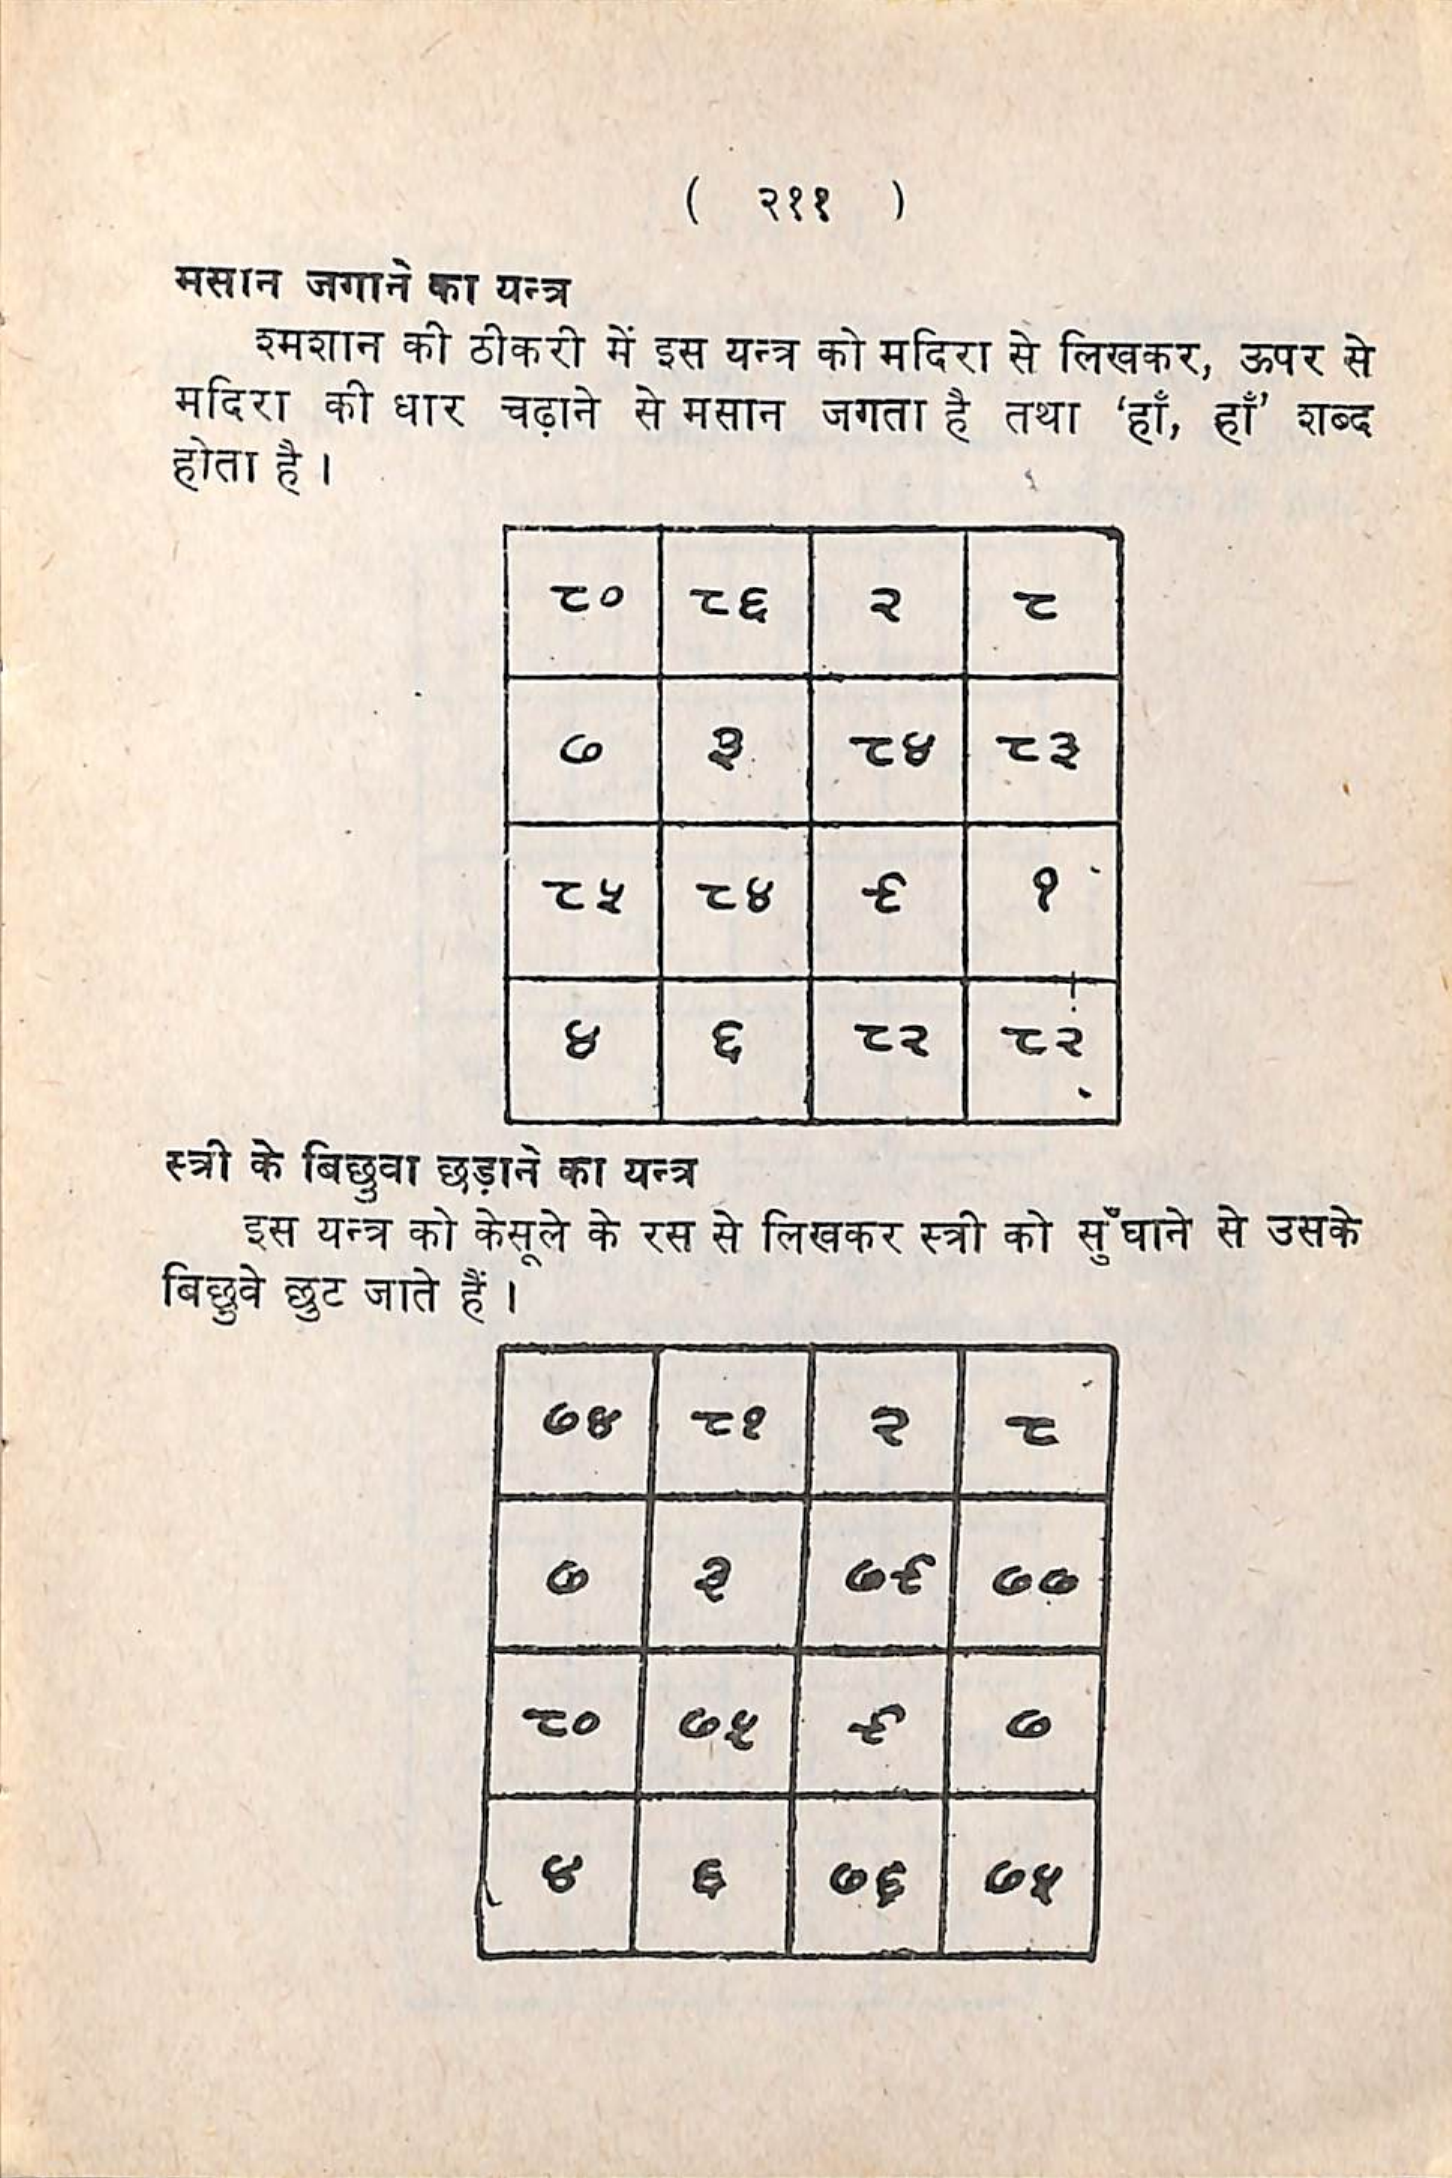 ( २११ )
मसान जगाने का यन्त्र
श्मशान की ठीकरी में इस यन्त्र को मदिरा से लिखकर, ऊपर से
मदिरा की धार चढ़ाने से मसान जगता है तथा ‘हाँ, हाँ’ शब्द
होता है ।
८० ८६ २ ८
७ ३ ८४ ८३
८५ ८४ ९ १
४ ६ ८२ ८२
स्त्री के बिछुवा छड़ाने का यन्त्र
इस यन्त्र को केसूले के रस से लिखकर स्त्री को सुँघाने से उसके
बिछुवे छुट जाते हैं ।
७४ ८१ २ ८
७ ३ ७९ ७७
८० ७५ ९ ७
४ ६ ७६ ७५